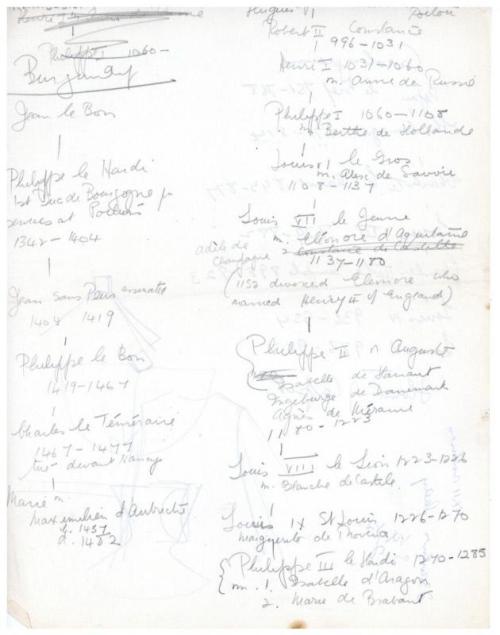 Philippe I 1060-
Burgandy
Jean le Bon
Philippe le Hardi
1st Duc de Bourgogne
services at Poitiers
1342-1404
Jean sans Peur
1404 1419
Philippe le Bon
1419-1467
Charles le Téméraire
1467-1477
tué devant Nancy
Marie m.
Maximilien d'Autriche
d. 1482
Hugues
Robert II Constance
996-1031
Henri I 1031-1060
m. Anne de Russie
Philippe I 1060-1108
m Berthe de Hollande
Louis VI le Gros
m. Alix de Savoie
1108-1137
Louis VII le Jeune
m. Eléonore d'Aquitaine
adèle de
Champagne 2 Constance de Castille
1137-1180
(1152 divorced Eleonore who
married Henry II of England)
Philippe II Auguste
Isabelle de Hainaut
Ingeburge de Danemark
Agnès de Méranie
1180-1223
Louis VIII le Lion 1223-1226
m. Blanche de Castile
Louis IX St Louis 1226-1270
Marguerite de Provence
Philippe III le Hardi 1270-1285
m. 1. Isabelle d'Aragon
2. Marie de Brabant